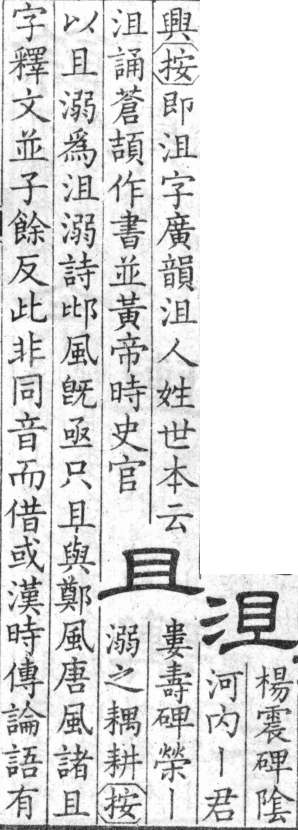 沮
楊震碑陰
河内丨君
興按即沮字廣韻沮人姓世本云
沮誦蒼頡作書並黃帝時史官
且
婁壽碑榮丨
溺之耦耕按
以且溺爲沮溺詩邶風旣亟只且與鄭風唐風諸且
字釋文並子餘反此非同音而借或漢時傳論語有